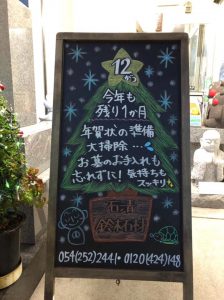 12がつ
今年も
残り1か月
年賀状の準備
大掃除…
お墓のお手入れも
忘れずに！気持ちも
スッキリ
石の店
鈴木石材
054(252)2441・0120(424)148